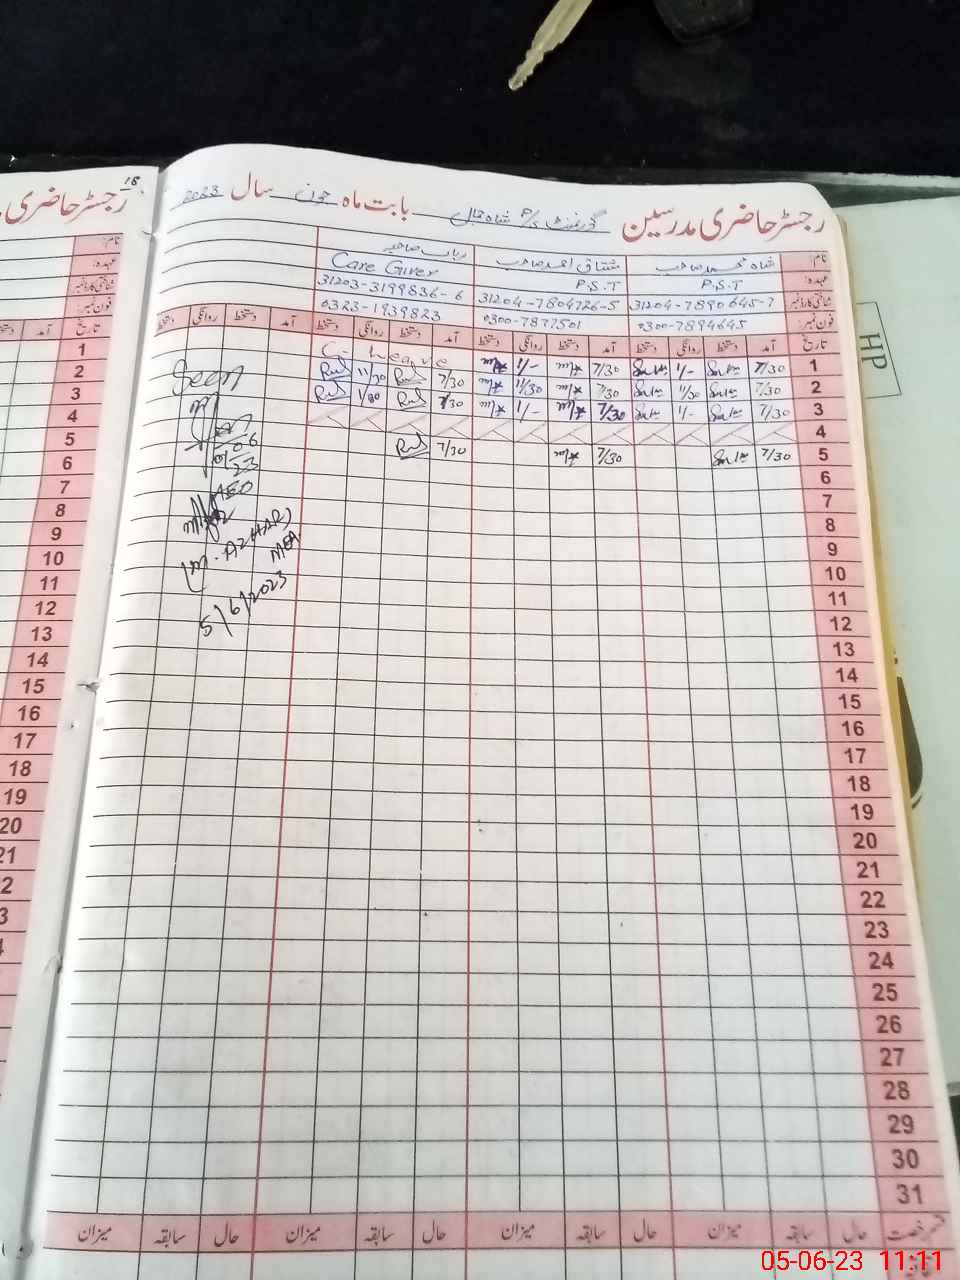 رجسٹر حاضری مدرسین گورنمنٹ P/S شاہ جمال بابت ماہ جون سال 2023
18
رجسٹر حاضری
نام: شاہ محمد صاحب مشتاق احمد صاحب رباب صاحبہ
عہدہ: P.S.T P.S.T Care Giver
شناختی کارڈ نمبر 31204-7890645-7 31204-7804726-5 31203-3199836-6
فون نمبر: 0300-7894645 0300-7877501 0323-1939823
تاریخ آمد دستخط روانگی دستخط آمد دستخط روانگی دستخط آمد دستخط روانگی دستخط آمد دستخط روانگی دستخط
1 7/30 1/- 7/30 1/- C- Leave
2 7/30 11/30 7/30 11/30 7/30 11/30
3 7/30 1/- 7/30 1/- 7/30 1/00
4
5 7/30 7/30 7/30
6
7
8
9
10
11
12
13
14
15
16
17
18
19
20
21
22
23
24
25
26
27
28
29
30
31
Seen
06
23
AEO
(M. AZHAR)
MEA
5/6/2023
حال سابقہ میزان حال سابقہ میزان حال سابقہ میزان حال سابقہ میزان
نام:
عہدہ:
شناختی کارڈ نمبر
فون نمبر:
تاریخ آمد دستخط
1
2
3
4
5
6
7
8
9
10
11
12
13
14
15
16
17
18
19
20
21
HP
05-06-23 11:11